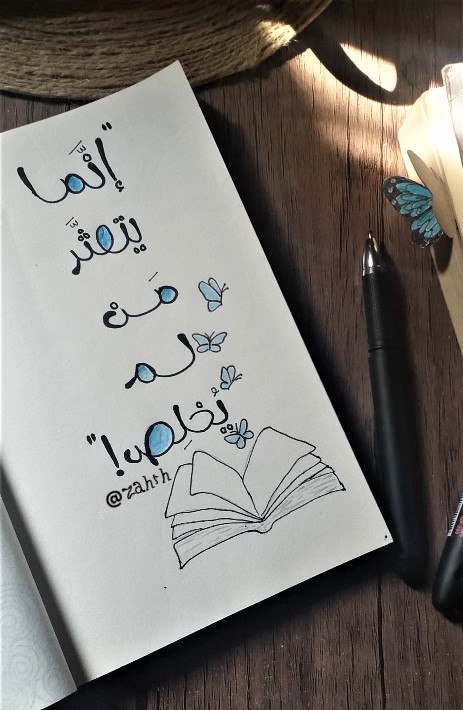 "إنَّما
يتعثَّر
مَن
لم
يُخلِص!"
@zahth